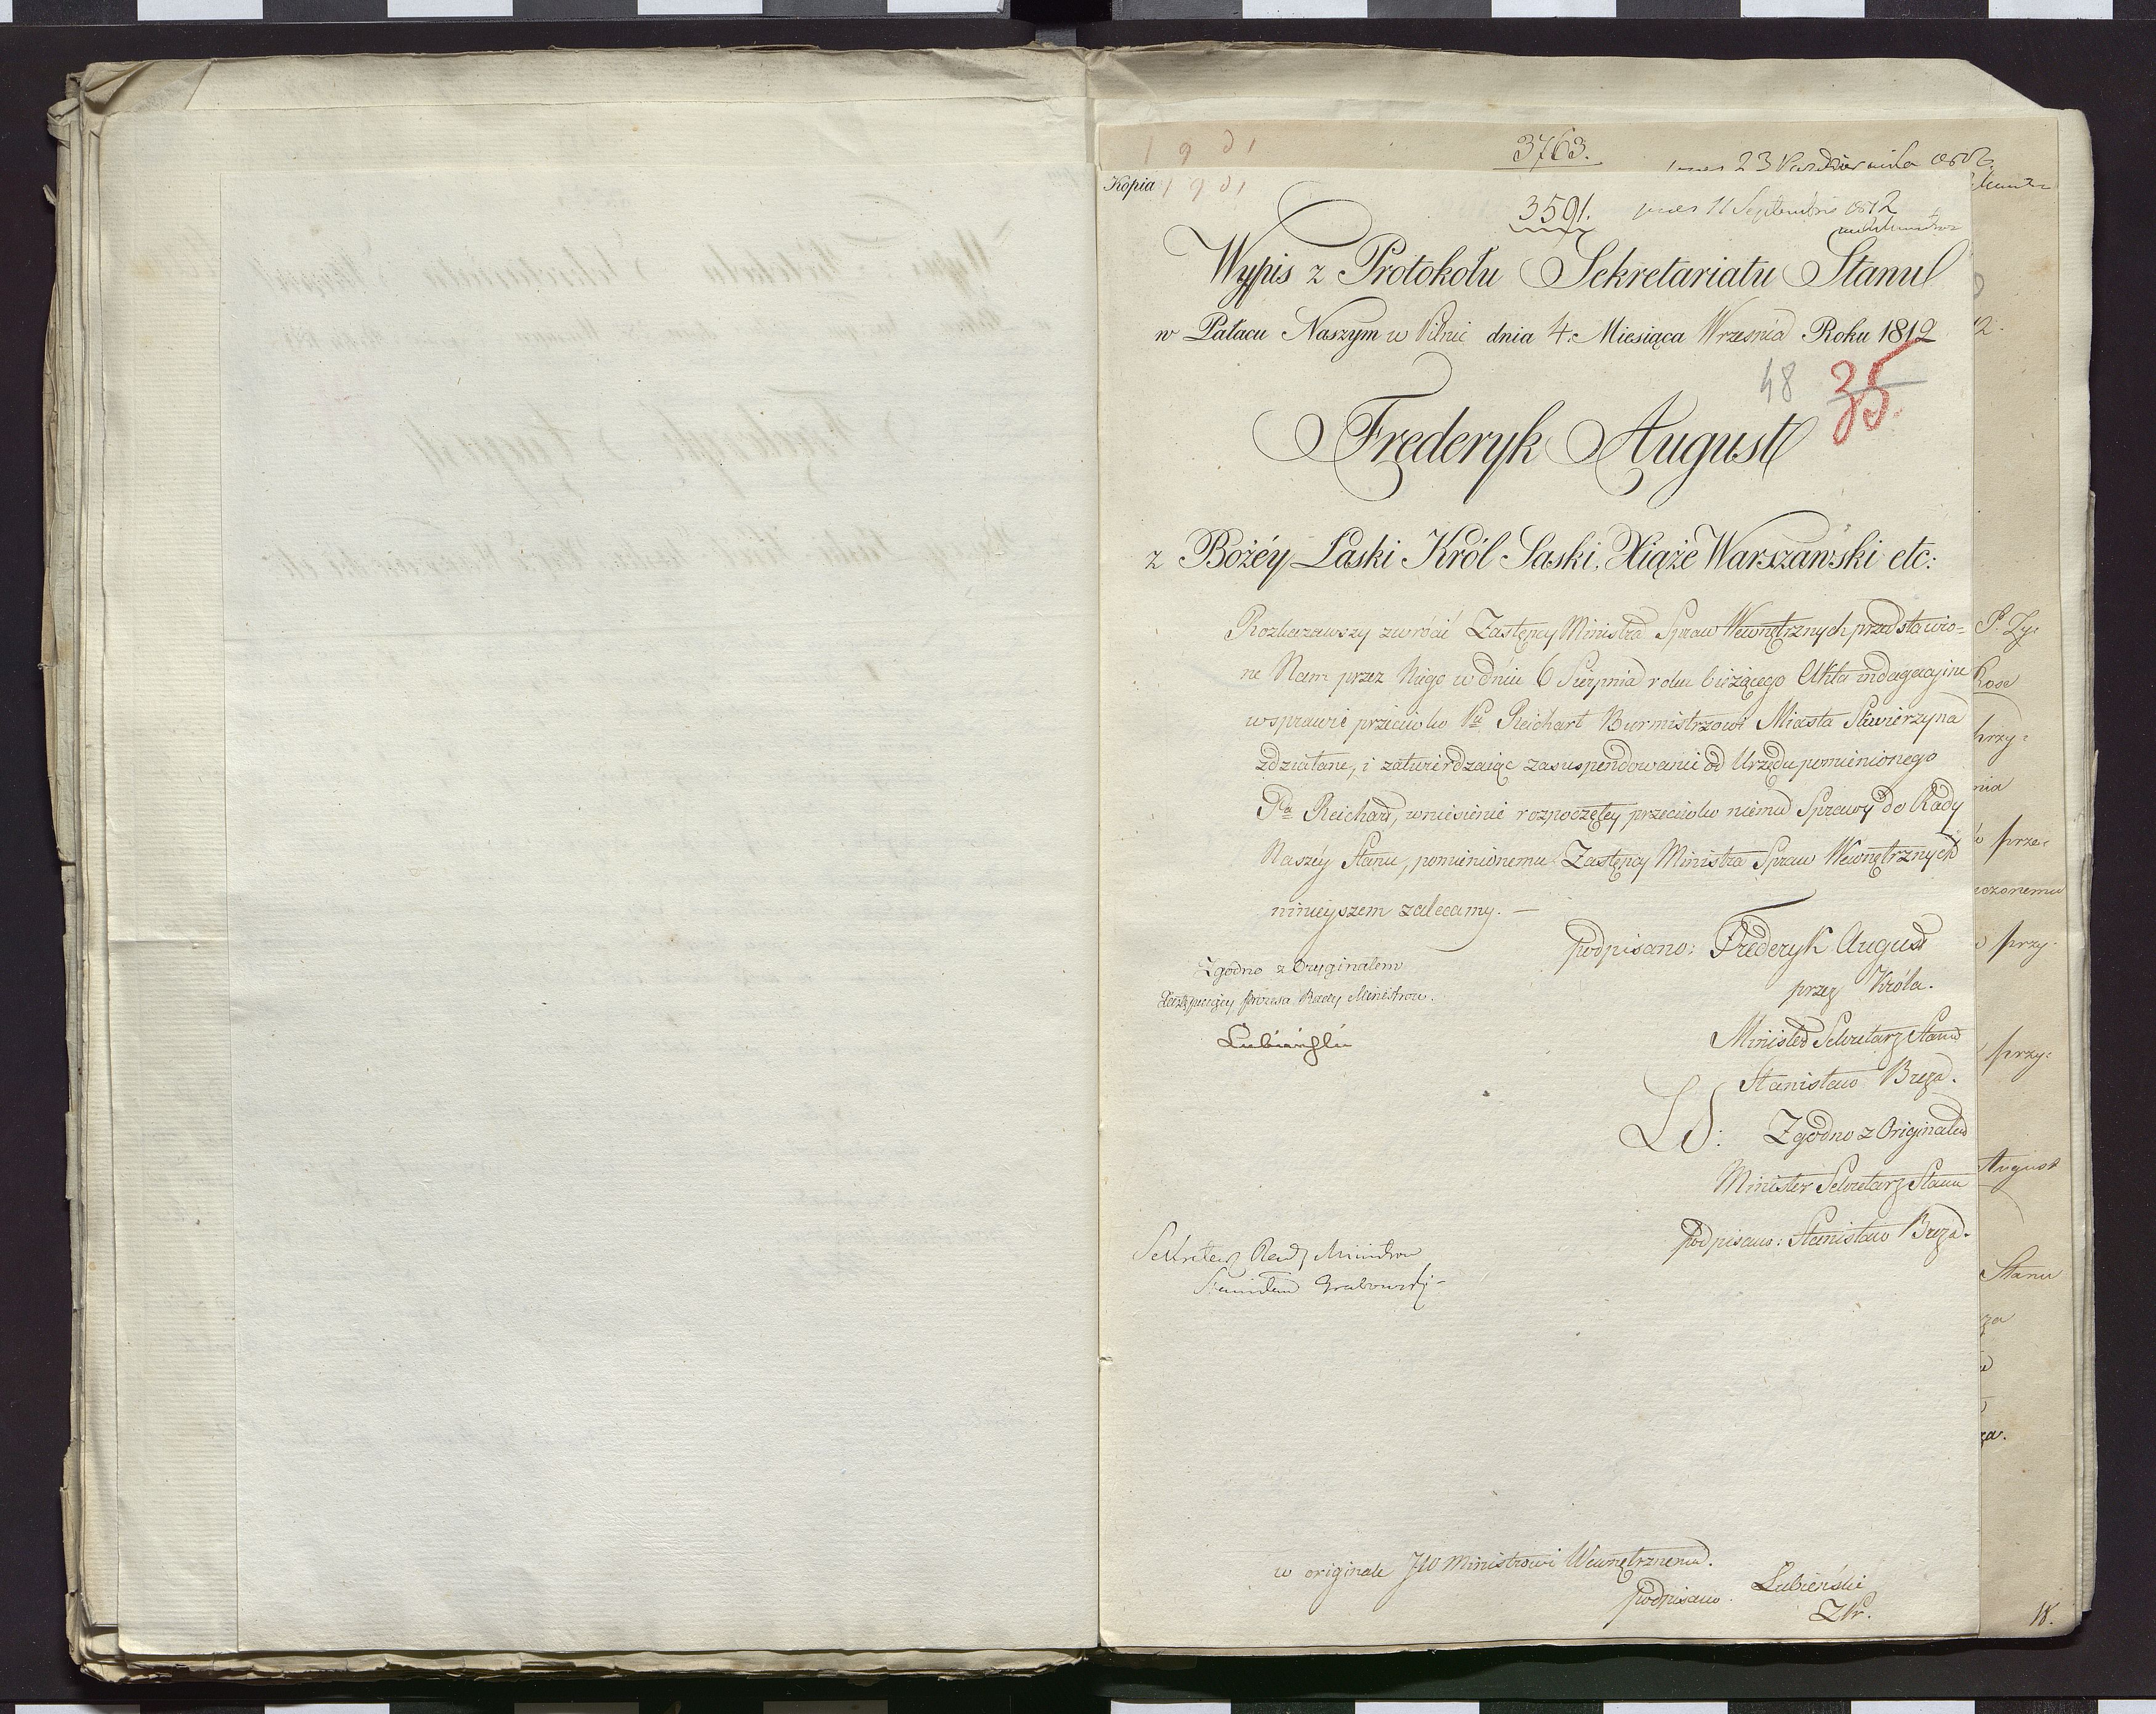 3763.
23 Października
Kopia
3591. 11 Septembris 1812
Wypis z Protokołu Sekretariatu Stanu
w Pałacu Naszym w Pilnic dnia 4. Miesiąca Września Roku 1812
48 35.
Frederyk August
z Bożéy Łaski Król Saski, Xiąże Warszawski etc:
Rozkazawszy zwrócić Zastępcy Ministra Spraw Wewnętrznych przedstawio=
ne Nam przez Niego w dniu 6 Sierpnia roku bieżącego Akta indagacyine
w sprawie przeciwko Pu Reichart Burmistrzowi Miasta Skwierzyna
zdziałane, i zatwierdzaiąc zasuspendowanie od Urzędu pomienionego
Pa Reichard, wniesienie rozpoczętey przeciwko niemu Sprawy do Rady
Naszéy Stanu, pomienionemu Zastępcy Ministra Spraw Wewnętrznych
ninieyszem zalecamy. —
podpisano: Frederyk August
przez Króla.
Minister Sekretarz Stanu
Stanisław Breza.
LS: Zgodno z Originałem
Minister Sekretarz Stanu
podpisano: Stanisław Breza.
Zgodno z Oryginałem
Zastępuiący Prezesa Rady Ministrow.
Lubieński
Sekretarz Rady Ministrow
Stanisław Grabowski
w originale JW Ministrowi Wewnętrznemu.
podpisano. Lubieński
ZPr.
P. Zy:
przy:
nia
prze:
czonemu
przy:
przy:
August
Stanu
za
za.
18.